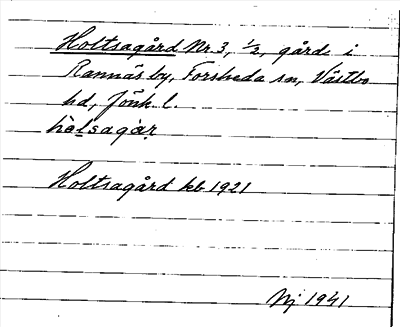 Holtsagård Nr. 3, 1/2, gård i
Rannäs by, Forsheda sn, Västbo
hd, Jönk. l.
hòlsagàr
Holtsagård kb 1921
Nj 1941